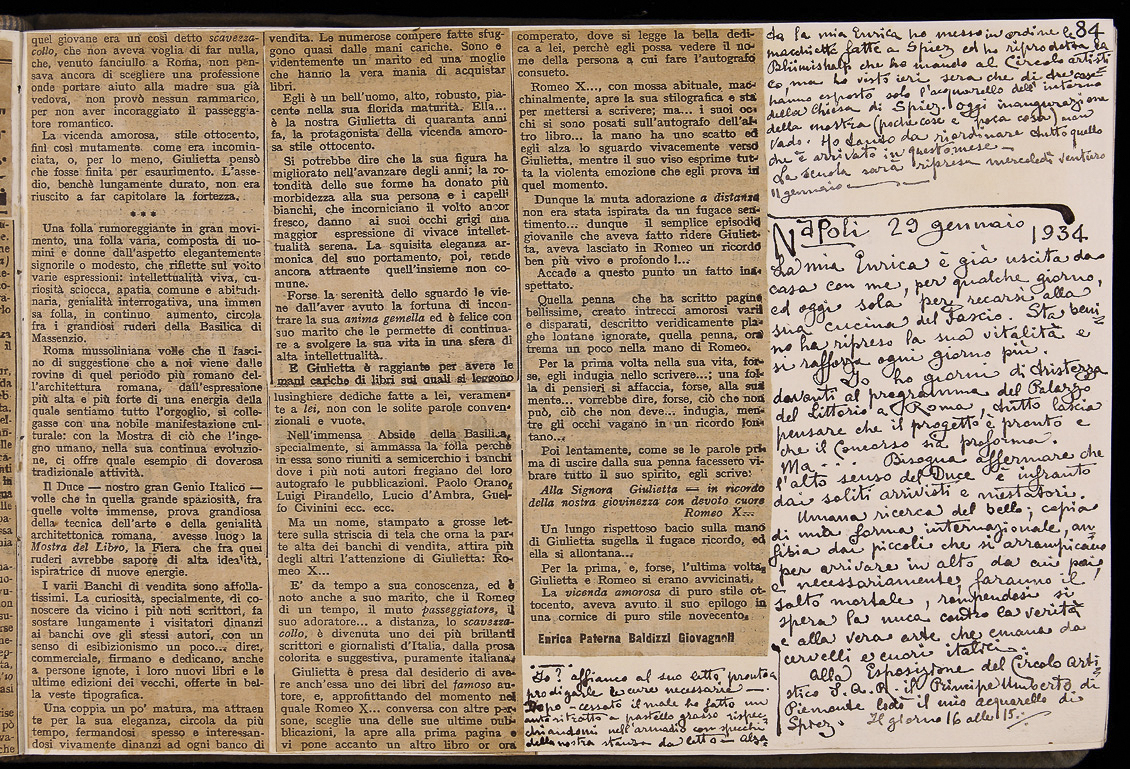 quel giovane era un così detto scavezza-
collo, che non aveva voglia di far nulla,
che, venuto fanciullo a Roma, non pen-
sava ancora di scegliere una professione
onde portare aiuto alla madre sua già
vedova, non provò nessun rammarico,
per non aver incoraggiato il passeggia-
tore romantico.
La vicenda amorosa, stile ottocento,
finì così mutamente. come era incomin-
ciata, o, per lo meno, Giulietta pensò
che fosse finita per esaurimento. L'asse-
dio, benchè lungamente durato, non era
riuscito a far capitolare la fortezza.
***
Una folla rumoreggiante in gran movi-
mento, una folla varia, composta di uo-
mini e donne dall'aspetto elegantemente
signorile o modesto, che riflette sul volto
varie espressioni: intellettualità viva, cu-
riosità sciocca, apatia comune e abitudi-
naria, genialità interrogativa, una immen
sa folla, in continuo aumento, circola
fra i grandiosi ruderi della Basilica di
Massenzio.
Roma mussoliniana volle che il fasci-
no di suggestione che a noi viene dalle
rovine di quel periodo più romano del-
l'architettura romana, dall'espressione
più alta e più forte di una energia della
quale sentiamo tutto l'orgoglio, si colle-
gasse con una nobile manifestazione cul-
turale: con la Mostra di ciò che l'inge-
gno umano, nella sua continua evoluzio-
ne, ci offre quale esempio di doverosa
tradizionale attività.
Il Duce — nostro gran Genio Italico —
volle che in quella grande spaziosità, fra
quelle volte immense, prova grandiosa
della tecnica dell'arte e della genialità
architettonica romana, avesse luogo la
Mostra del Libro, la Fiera che fra quei
ruderi avrebbe sapore di alta idealità,
ispiratrice di nuove energie.
I varii Banchi di vendita sono affolla-
tissimi. La curiosità, specialmente, di co-
noscere da vicino i più noti scrittori, fa
sostare lungamente i visitatori dinanzi
ai banchi ove gli stessi autori, con un
senso di esibizionismo un poco... direi,
commerciale, firmano e dedicano, anche
a persone ignote, i loro nuovi libri e le
ultime edizioni dei vecchi, offerte in bel-
la veste tipografica.
Una coppia un po' matura, ma attraen
te per la sua eleganza, circola da più
tempo, fermandosi spesso e interessan-
dosi vivamente dinanzi ad ogni banco di
vendita. Le numerose compere fatte sfug-
gono quasi dalle mani cariche. Sono e
videntemente un marito ed una moglie
che hanno la vera mania di acquistar
libri.
Egli è un bell'uomo, alto, robusto, pia-
cente nella sua florida maturità. Ella...
è la nostra Giulietta di quaranta anni
fa, la protagonista della vicenda amoro-
sa stile ottocento.
Si potrebbe dire che la sua figura ha
migliorato nell'avanzare degli anni; la ro-
tondità delle sue forme ha donato più
morbidezza alla sua persona e i capelli
bianchi, che incorniciano il volto ancor
fresco, danno ai suoi occhi grigi una
maggior espressione di vivace intellet-
tualità serena. La squisita eleganza ar-
monica del suo portamento, poi, rende
ancora attraente quell'insieme non co-
mune.
Forse la serenità dello sguardo le vie-
ne dall'aver avuto la fortuna di incon-
trare la sua anima gemella ed è felice con
suo marito che le permette di continua-
re a svolgere la sua vita in una sfera di
alta intellettualità.
E Giulietta è raggiante per avere le
mani cariche di libri sui quali si leggono
lusinghiere dediche fatte a lei, veramen-
te a lei, non con le solite parole conven-
zionali e vuote.
Nell'immensa Abside della Basilica,
specialmente, si ammassa la folla perchè
in essa sono riuniti a semicerchio i banchi
dove i più noti autori fregiano del loro
autografo le pubblicazioni. Paolo Orano,
Luigi Pirandello, Lucio d'Ambra, Guel-
fo Civinini ecc. ecc.
Ma un nome, stampato a grosse let-
tere sulla striscia di tela che orna la par-
te alta dei banchi di vendita, attira più
degli altri l'attenzione di Giulietta: Ro-
meo X...
E' da tempo a sua conoscenza, ed è
noto anche a suo marito, che il Romeo
di un tempo, il muto passeggiatore, il
suo adoratore... a distanza, lo scavezza-
collo, è divenuta uno dei più brillanti
scrittori e giornalisti d'Italia, dalla prosa
colorita e suggestiva, puramente italiana.
Giulietta è presa dal desiderio di ave-
re anch'essa uno dei libri del famoso au-
tore, e, approfittando del momento nel
quale Romeo X... conversa con altre per-
sone, sceglie una delle sue ultime pub-
blicazioni, la apre alla prima pagina e
vi pone accanto un altro libro or ora
comperato, dove si legge la bella dedi-
ca a lei, perchè egli possa vedere il no-
me della persona a cui fare l'autografo
consueto.
Romeo X..., con mossa abituale, mac-
chinalmente, apre la sua stilografica e sta
per mettersi a scrivere; ma... i suoi oc-
chi si sono posati sull'autografo dell'al-
tro libro... la mano ha uno scatto ed
egli alzo lo sguardo vivacemente verso
Giulietta, mentre il suo viso esprime tut-
ta la violenta emozione che egli prova in
quel momento.
Dunque la muta adorazione a distanza
non era stata ispirata da un fugace sen-
timento... dunque il semplice episodio
giovanile che aveva fatto ridere Giuliet-
ta, aveva lasciato in Romeo un ricordo
ben più vivo e profondo !...
Accade a questo punto un fatto ina-
spettato.
Quella penna che ha scritto pagine
bellissime, creato intrecci amorosi varii
e disparati, descritto veridicamente pla-
ghe lontane ignorate, quella penna, ora
trema un poco nella mano di Romeo.
Per la prima volta nella sua vita, for-
se, egli indugia nello scrivere...; una fol-
la di pensieri si affaccia, forse, alla sua
mente... vorrebbe dire, forse, ciò che non
può, ciò che non deve... indugia, men-
tre gli occhi vagano in un ricordo lon-
tano...
Poi lentamente, come se le parole pri-
ma di uscire dalla sua penna facessero vi-
brare tutto il suo spirito, egli scrive:
Alla Signora Giulietta — in ricordo
della nostra giovinezza con devoto cuore
Romeo X...
Un lungo rispettoso bacio sulla mano
di Giulietta sugella il fugace ricordo, ed
ella si allontana...
Per la prima, e, forse, l'ultima volta,
Giulietta e Romeo si erano avvicinati.
La vicenda amorosa di puro stile ot-
tocento, aveva avuto il suo epilogo in
una cornice di puro stile novecento.
Enrica Paterna Baldizzi Giovagnoli
Io? affianco al suo letto, pronto a
prodigarle le cure necessarie —.
Dopo cessato il male ho fatto un
autoritratto a pastello grasso rispec-
chiandomi nell'armadio con specchi
della nostra stanza da letto —
84
da la mia Enrica ho messo in ordine le
macchiette fatte a Spiez ed ho riprodotto la
Blümisalp che ho mando al Circolo artisti-
co, ma ho visto ieri sera che di tre cose
hanno esposto solo l'acquarello dell'interno
della Chiesa di Spiez. Oggi inaugurazione
della mostra (poche cose e poca cosa) non
vado. Ho da riordinare tutto quello
che è arrivato in questo mese —
La scuola sarà ripresa mercoledì venturo
11 gennaio —
Napoli 29 gennaio 1934
La mia Enrica è già uscita da
casa con me, per qualche giorno,
ed oggi sola per recarsi alla
sua cucina del Fascio. Sta beni-
no ha ripreso la sua vitalità e
si rafforza ogni giorno più.
Io ho giorni di tristezza
davanti al programma del Palazzo
del Littorio a Roma, tutto lascia
pensare che il progetto è pronto e
che il Concorso sia proforma.
Ma... Bisogna affermare che
l'alto senso del Duce è infranto
dai soliti arrivisti e mestatori.
Umana ricerca del bello; copia
di muta forma internazionale, an
fibia dai piccoli che si arrampicano
per arrivare in alto da cui poi,
necessariamente faranno il
salto mortale, rompendosi si
spera la nuca contro la verità
e alla vera arte che emana da
cervelli e cuori italici.
Alla Esposizione del Circolo Arti-
stico S.A.R. il Principe Umberto di
Piemonte lodò il mio acquarello di
Spiez. Il giorno 16 alle 15.